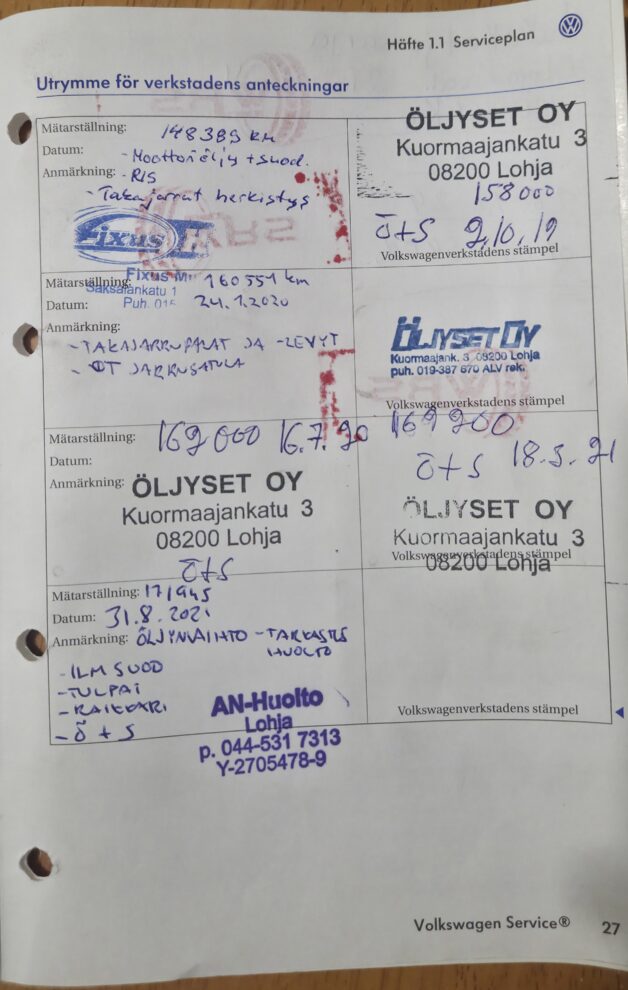 Häfte 1.1 Serviceplan
Utrymme för verkstadens anteckningar
Mätarställning: 148389 km
Datum: - Moottoriöljy + suod.
Anmärkning: - RIS
- Takajarrut herkistys
Fixus
Fixus
Saksalankatu 1
Puh.
ÖLJYSET OY
Kuormaajankatu 3
08200 Lohja
158000
Ö+S 2,10,19
Volkswagenverkstadens stämpel
Mätarställning: 160551 km
Datum: 24.1.2020
Anmärkning:
- TAKAJARRUPALAT JA -LEVYT
ÖLJYSET OY
Kuormaajank. 3 08200 Lohja
puh. 019-387 670 ALV rek.
Volkswagenverkstadens stämpel
Mätarställning: 162000 16.7.20
Datum:
Anmärkning:
ÖLJYSET OY
Kuormaajankatu 3
08200 Lohja
Ö+S
169200
Ö+S 18.5.21
ÖLJYSET OY
Kuormaajankatu 3
Volkswagenverkstadens stämpel
08200 Lohja
Mätarställning: 171945
Datum: 31.8.2021
Anmärkning: ÖLJYNVAIHTO - TARKASTUS
HUOLTO
- ILM SUOD
- TULPAT
- RAIKKARI
- Ö + S
AN-Huolto
Lohja
p. 044-531 7313
Y-2705478-9
Volkswagenverkstadens stämpel
Volkswagen Service®
27